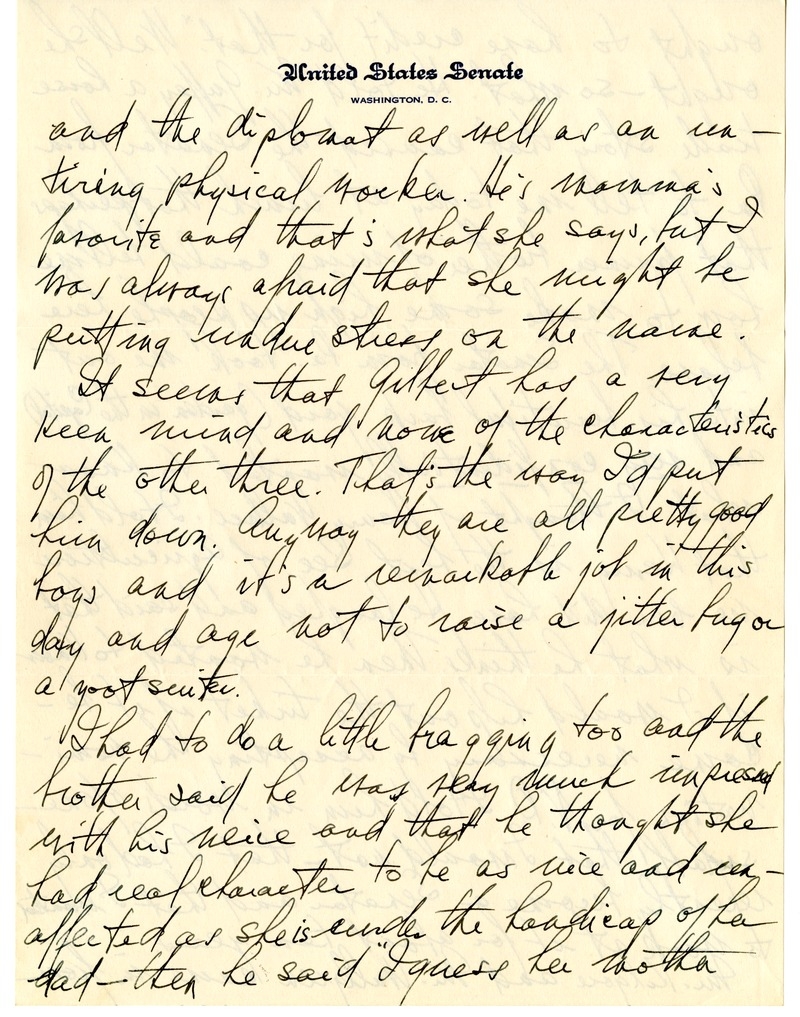 United States Senate
WASHINGTON, D. C.
and the diplomat as well as an un-
tiring physical worker. He's mamma's
favorite and that's what she says, but I
was always afraid that she might be
putting undue stress on the name.
It seems that Gilbert has a very
keen mind and none of the characteristics
of the other three. That's the way I'd put
him down. Anyway they are all pretty good
boys and it's a remarkable job in this
day and age not to raise a jitter bug or
a zoot suiter.
I had to do a little bragging too and the
brother said he was very much impressed
with his neice and that he thought she
had real character to be as nice and un-
affected as she is under the handicap of her
dad—then he said "I guess her mother